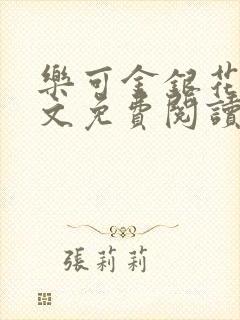 樂可金銀花
文免費閱讀
張莉莉